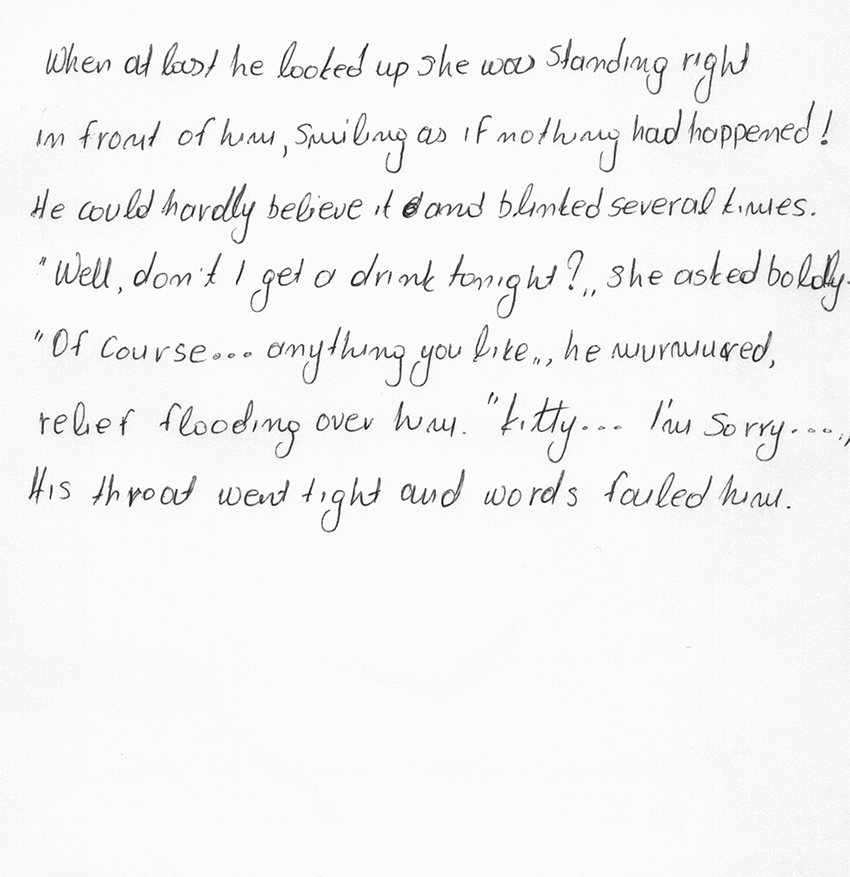 When at last he looked up she was standing right
in front of him, smiling as if nothing had happened!
He could hardly believe it and blinked several times.
"Well, don't I get a drink tonight?„ she asked boldly.
"Of course... anything you like„, he murmured,
relief flooding over him. "Kitty... I'm sorry...„
His throat went tight and words failed him.